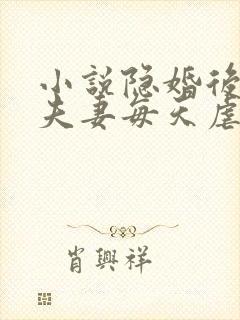 小說隐婚後
夫妻每天虐
肖興祥